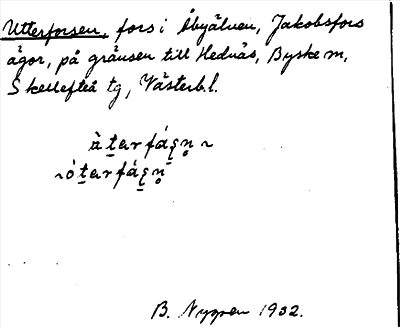 Utterforsen, fors i Åbyälven, Jakobsfors
ägor, på gränsen till Hednäs, Byske m,
Skellefteå tg, Västerb.l.
àt̲arfáşn̥ ~
~ót̲arfáşn̥
B. Nygren 1932.